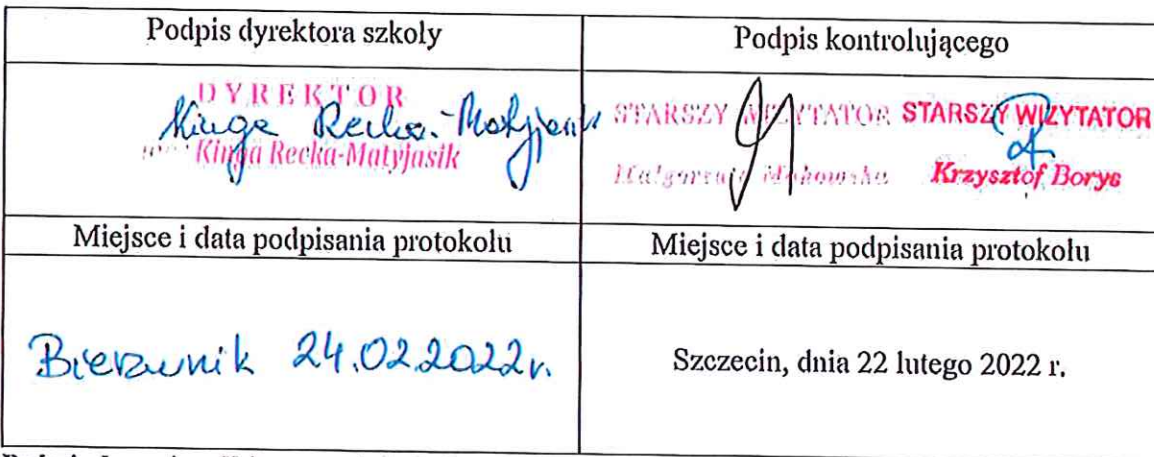 Podpis dyrektora szkoły
Podpis kontrolującego
DYREKTOR
Kinga Recka-Matyjasik
Kinga Recka-Matyjasik
STARSZY WIZYTATOR
Małgorzata Makowska
STARSZY WIZYTATOR
Krzysztof Borys
Miejsce i data podpisania protokołu
Miejsce i data podpisania protokołu
Bierzwnik 24.02.2022r.
Szczecin, dnia 22 lutego 2022 r.